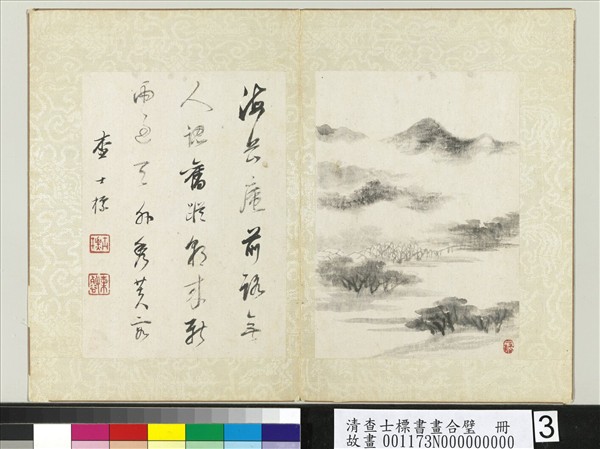 海岳庵前路無
人認舊蹤朝來新
雨過天外秀芙蓉
查士標
清查士標書畫合璧 冊
故畫 001173N000000000
3